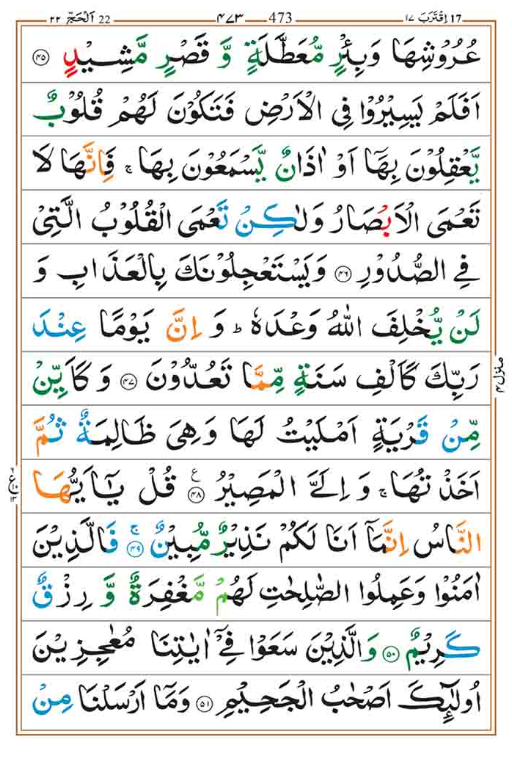 ٢٢ اَلْحَجّ 22 ٤٧٣ 473 ١٧ اِقْتَرَبَ 17
عُرُوْشِهَا وَبِئْرٍ مُّعَطَّلَةٍ وَّ قَصْرٍ مَّشِيْدٍ ﴿٤٥﴾
اَفَلَمْ يَسِيْرُوْا فِى الْاَرْضِ فَتَكُوْنَ لَهُمْ قُلُوْبٌ
يَّعْقِلُوْنَ بِهَاۤ اَوْ اٰذَانٌ يَّسْمَعُوْنَ بِهَا ۚ فَاِنَّهَا لَا
تَعْمَى الْاَبْصَارُ وَلٰكِنْ تَعْمَى الْقُلُوْبُ الَّتِىْ
فِى الصُّدُوْرِ ﴿٤٦﴾ وَيَسْتَعْجِلُوْنَكَ بِالْعَذَابِ وَ
لَنْ يُّخْلِفَ اللّٰهُ وَعْدَهٗ ؕ وَ اِنَّ يَوْمًا عِنْدَ
رَبِّكَ كَاَلْفِ سَنَةٍ مِّمَّا تَعُدُّوْنَ ﴿٤٧﴾ وَ كَاَيِّنْ
مِّنْ قَرْيَةٍ اَمْلَيْتُ لَهَا وَهِىَ ظَالِمَةٌ ثُمَّ
اَخَذْتُهَا ۚ وَ اِلَىَّ الْمَصِيْرُ ﴿٤٨﴾ ع قُلْ يٰۤاَيُّهَا
النَّاسُ اِنَّمَاۤ اَنَا لَكُمْ نَذِيْرٌ مُّبِيْنٌ ۚ ﴿٤٩﴾ فَالَّذِيْنَ
اٰمَنُوْا وَعَمِلُوا الصّٰلِحٰتِ لَهُمْ مَّغْفِرَةٌ وَّ رِزْقٌ
كَرِيْمٌ ﴿٥٠﴾ وَالَّذِيْنَ سَعَوْا فِىْۤ اٰيٰتِنَا مُعٰجِزِيْنَ
اُولٰٓئِكَ اَصْحٰبُ الْجَحِيْمِ ﴿٥١﴾ وَمَاۤ اَرْسَلْنَا مِنْ
منزل ٤